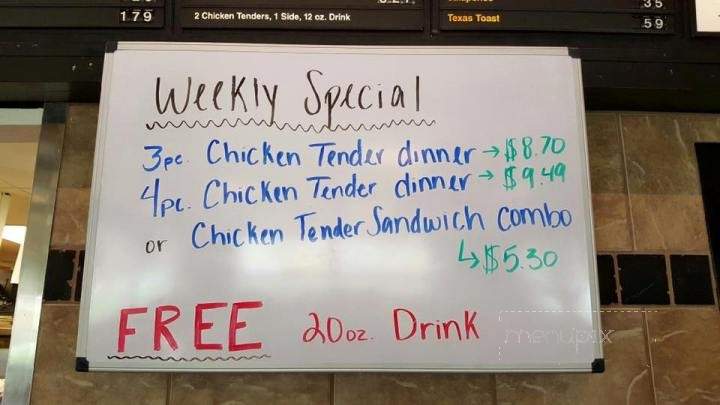 1.79
2 Chicken Tenders, 1 Side, 12 oz. Drink
Texas Toast
.35
.59
Weekly Special
3pc. Chicken Tender dinner → $8.70
4pc. Chicken Tender dinner → $9.49
or Chicken Tender Sandwich combo
↳ $5.30
FREE 20oz. Drink
menupix